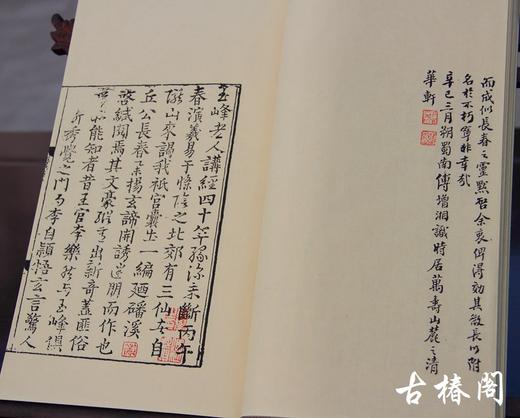 而成似長春之靈默啓余衷俾得効其微長以附
名於不朽寧非幸哉
辛巳三月朔蜀南傅增湘識時居萬壽山麓之清
華軒
玉峰老人講經四十年緣深未斷丙午
春演義易于條陰之北郊有三仙者自
磁山來謁我祇宮囊出一編迺磻溪
丘公長春子揚玄諦開誘朋而作也
啓緘閱焉其文豪縱出新奇蓋匪俗
不能知者昔王官李樂然与玉峰俱
秀覺之門李自穎悟玄言驚人
古椿閣